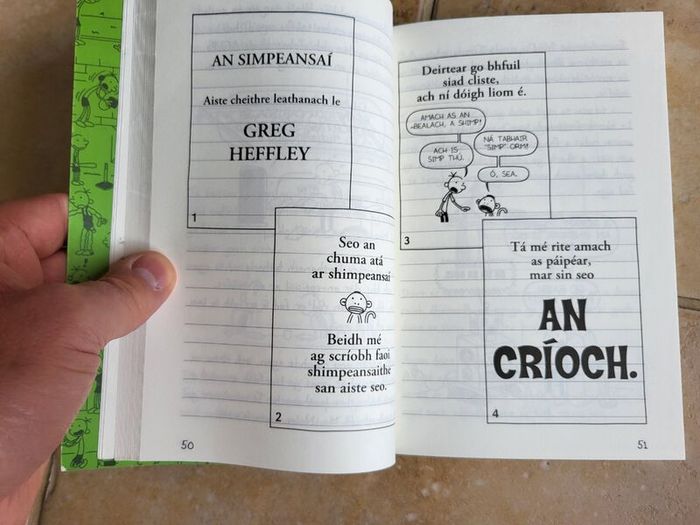 AN SIMPEANSAÍ
Aiste cheithre leathanach le
GREG
HEFFLEY
1
Seo an
chuma atá
ar shimpeansaí
Beidh mé
ag scríobh faoi
shimpeansaithe
san aiste seo.
2
50
Deirtear go bhfuil
siad cliste,
ach ní dóigh liom é.
AMACH AS AN
BEALACH, A SHIMP!
NÁ TABHAIR
"SIMP" ORM!
ACH IS
SIMP THÚ.
Ó, SEA.
3
Tá mé rite amach
as páipéar,
mar sin seo
AN
CRÍOCH.
4
51